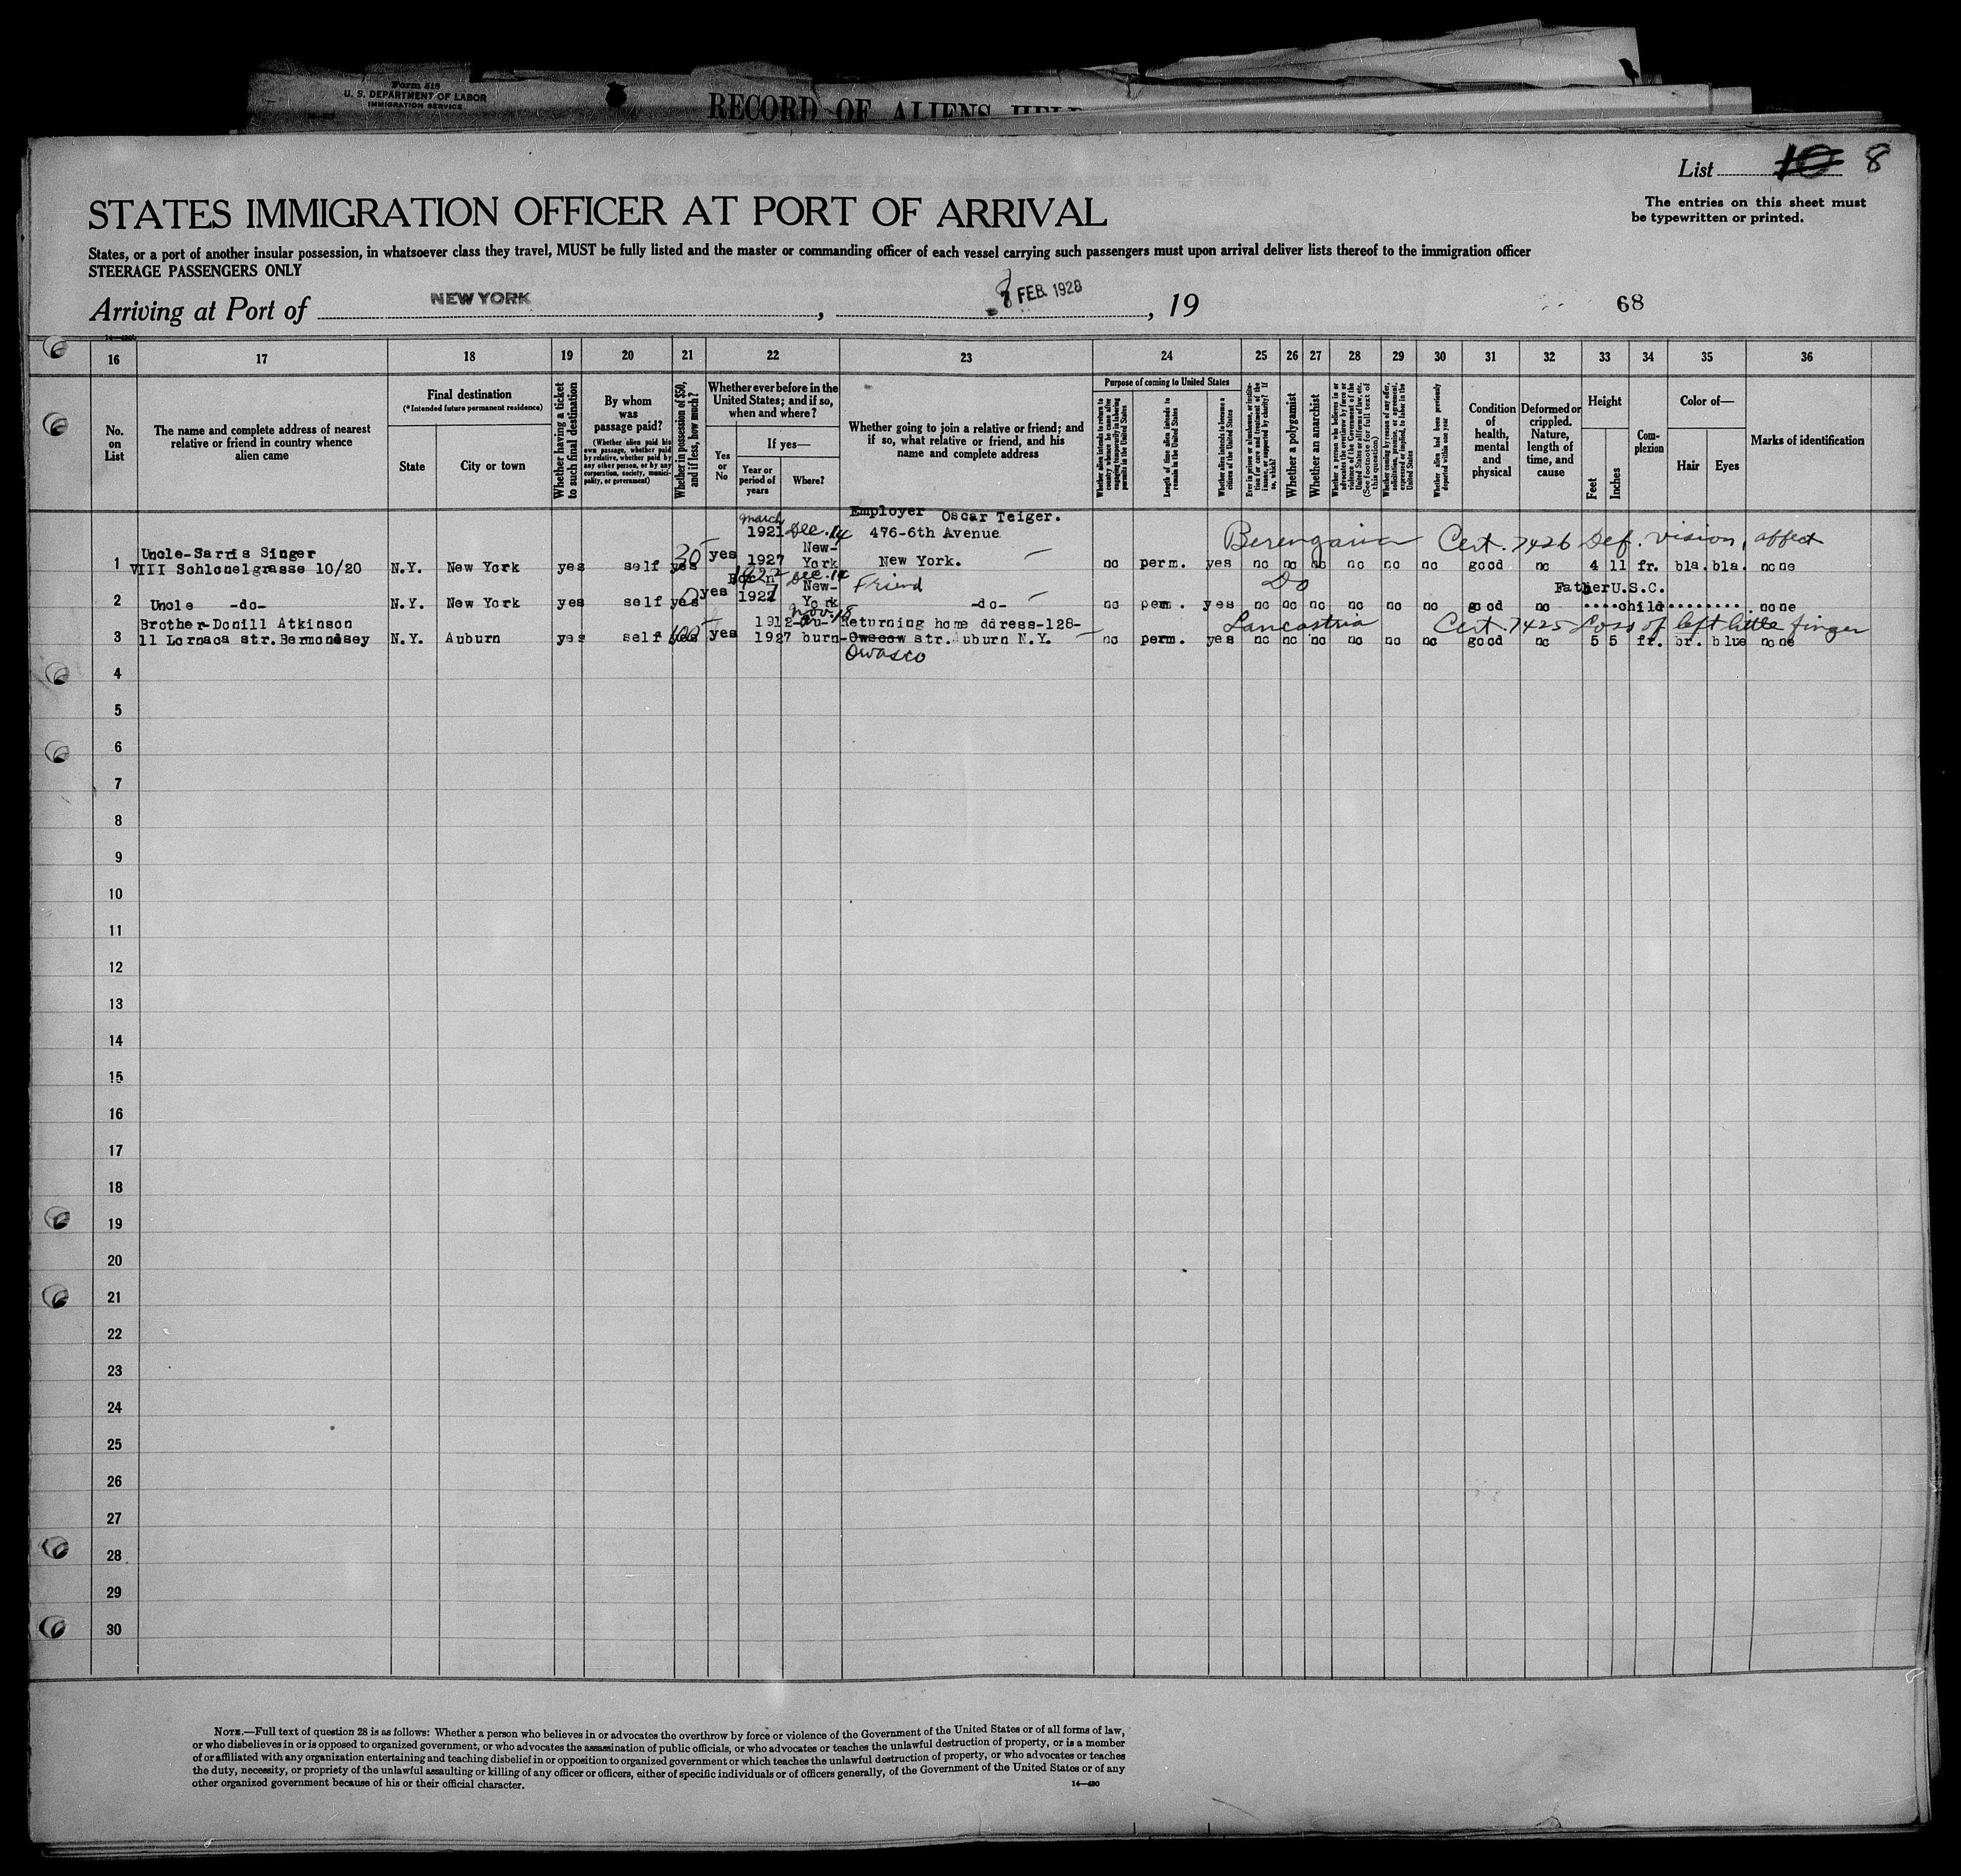 Form 515
U. S. DEPARTMENT OF LABOR
IMMIGRATION SERVICE
RECORD OF ALIENS HELD
List 10 8
The entries on this sheet must
be typewritten or printed.
STATES IMMIGRATION OFFICER AT PORT OF ARRIVAL
States, or a port of another insular possession, in whatsoever class they travel, MUST be fully listed and the master or commanding officer of each vessel carrying such passengers must upon arrival deliver lists thereof to the immigration officer
STEERAGE PASSENGERS ONLY
Arriving at Port of NEW YORK, 8 FEB. 1928, 19 68
16 17 18 19 20 21 22 23 24 25 26 27 28 29 30 31 32 33 34 35 36
No. on List
The name and complete address of nearest
relative or friend in country whence
alien came
Final destination
(*Intended future permanent residence)
State
City or town
Whether having a ticket
to such final destination
By whom
was
passage paid?
(Whether alien paid his
own passage, whether paid
by relative, whether paid by
any other person, or by any
corporation, society, munici-
pality, or government)
Whether in possession of $50,
and if less, how much?
Whether ever before in the
United States; and if so,
when and where?
Yes
or
No
If yes—
Year or
period of
years
Where?
Whether going to join a relative or friend; and
if so, what relative or friend, and his
name and complete address
Purpose of coming to United States
Whether alien intends to return to
country whence he came after
engaging temporarily in laboring
pursuits in the United States
Length of time alien intends to
remain in the United States
Whether alien intends to become a
citizen of the United States
Ever in prison or almshouse, or institu-
tion for care and treatment of the
insane, or supported by charity? If
so, which?
Whether a polygamist
Whether an anarchist
Whether a person who believes in or
advocates the overthrow by force or
violence of the Government of the
United States or all forms of law, etc.
(See footnote for full text of
this question)
Whether coming by reason of any offer,
solicitation, promise, or agreement,
expressed or implied, to labor in the
United States
Whether alien had been previously
deported within one year
Condition
of
health,
mental
and
physical
Deformed or
crippled.
Nature,
length of
time, and
cause
Height
Feet
Inches
Com-
plexion
Color of—
Hair
Eyes
Marks of identification
Employer Oscar Teiger.
march
1921 Dec. 14 476-6th Avenue Berengaria Cert. 7426 Def. vision, affect
Uncle-Sarris Singer 30 New-
1 VIII Schlonelgrasse 10/20 N.Y. New York yes self yes yes 1927 York New York. no perm. yes no no no no no no good no 4 11 fr. bla. bla. none
Born 1922 Dec. 14 New- Friend Do Father U.S.C.
2 Uncle -do- N.Y. New York yes self yes 0 yes 1927 York -do- no perm. yes no no no no no no good no child none
Brother-Donill Atkinson 100 1912- Nov. 18 Returning home ddress-128- Lancastria Cert. 7425 Loss of left little finger
3 11 Lornaca str. Bermondsey N.Y. Auburn yes self yes yes 1927 burn Owscow str. uburn N.Y. no perm. yes no no no no no no good no 5 5 fr. br. blue none
Owasco
4
5
6
7
8
9
10
11
12
13
14
15
16
17
18
19
20
21
22
23
24
25
26
27
28
29
30
NOTE.—Full text of question 28 is as follows: Whether a person who believes in or advocates the overthrow by force or violence of the Government of the United States or of all forms of law,
or who disbelieves in or is opposed to organized government, or who advocates the assassination of public officials, or who advocates or teaches the unlawful destruction of property, or is a member
of or affiliated with any organization entertaining and teaching disbelief in or opposition to organized government or which teaches the unlawful destruction of property, or who advocates or teaches
the duty, necessity, or propriety of the unlawful assaulting or killing of any officer or officers, either of specific individuals or of officers generally, of the Government of the United States or of any
other organized government because of his or their official character.
14—480